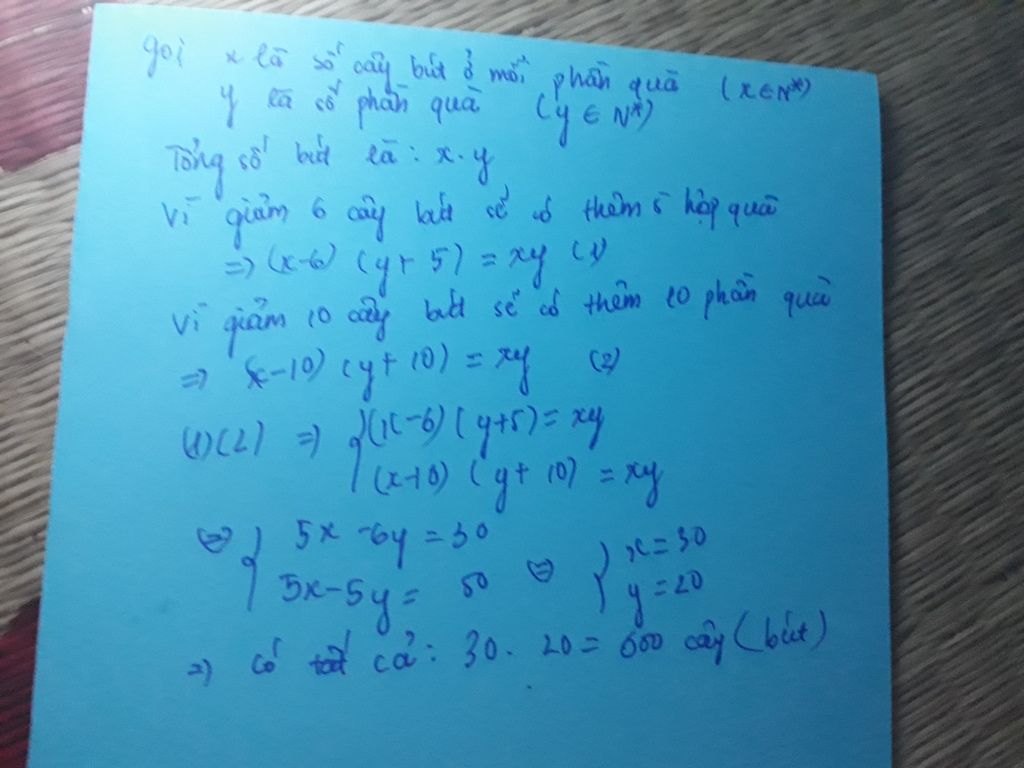 gọi x là số cây bút ở mỗi phần quà (x ∈ N*)
y là số phần quà (y ∈ N*)
Tổng số bút là: x.y
Vì giảm 6 cây bút sẽ có thêm 5 hộp quà
=> (x-6) (y+5) = xy (1)
Vì giảm 10 cây bút sẽ có thêm 10 phần quà
=> (x-10) (y+10) = xy (2)
(1)(2) => { (x-6) (y+5) = xy
(x-10) (y+10) = xy
<=> { 5x - 6y = 30 <=> { x = 30
5x - 5y = 50 y = 20
=> Có tất cả: 30. 20 = 600 cây (bút)